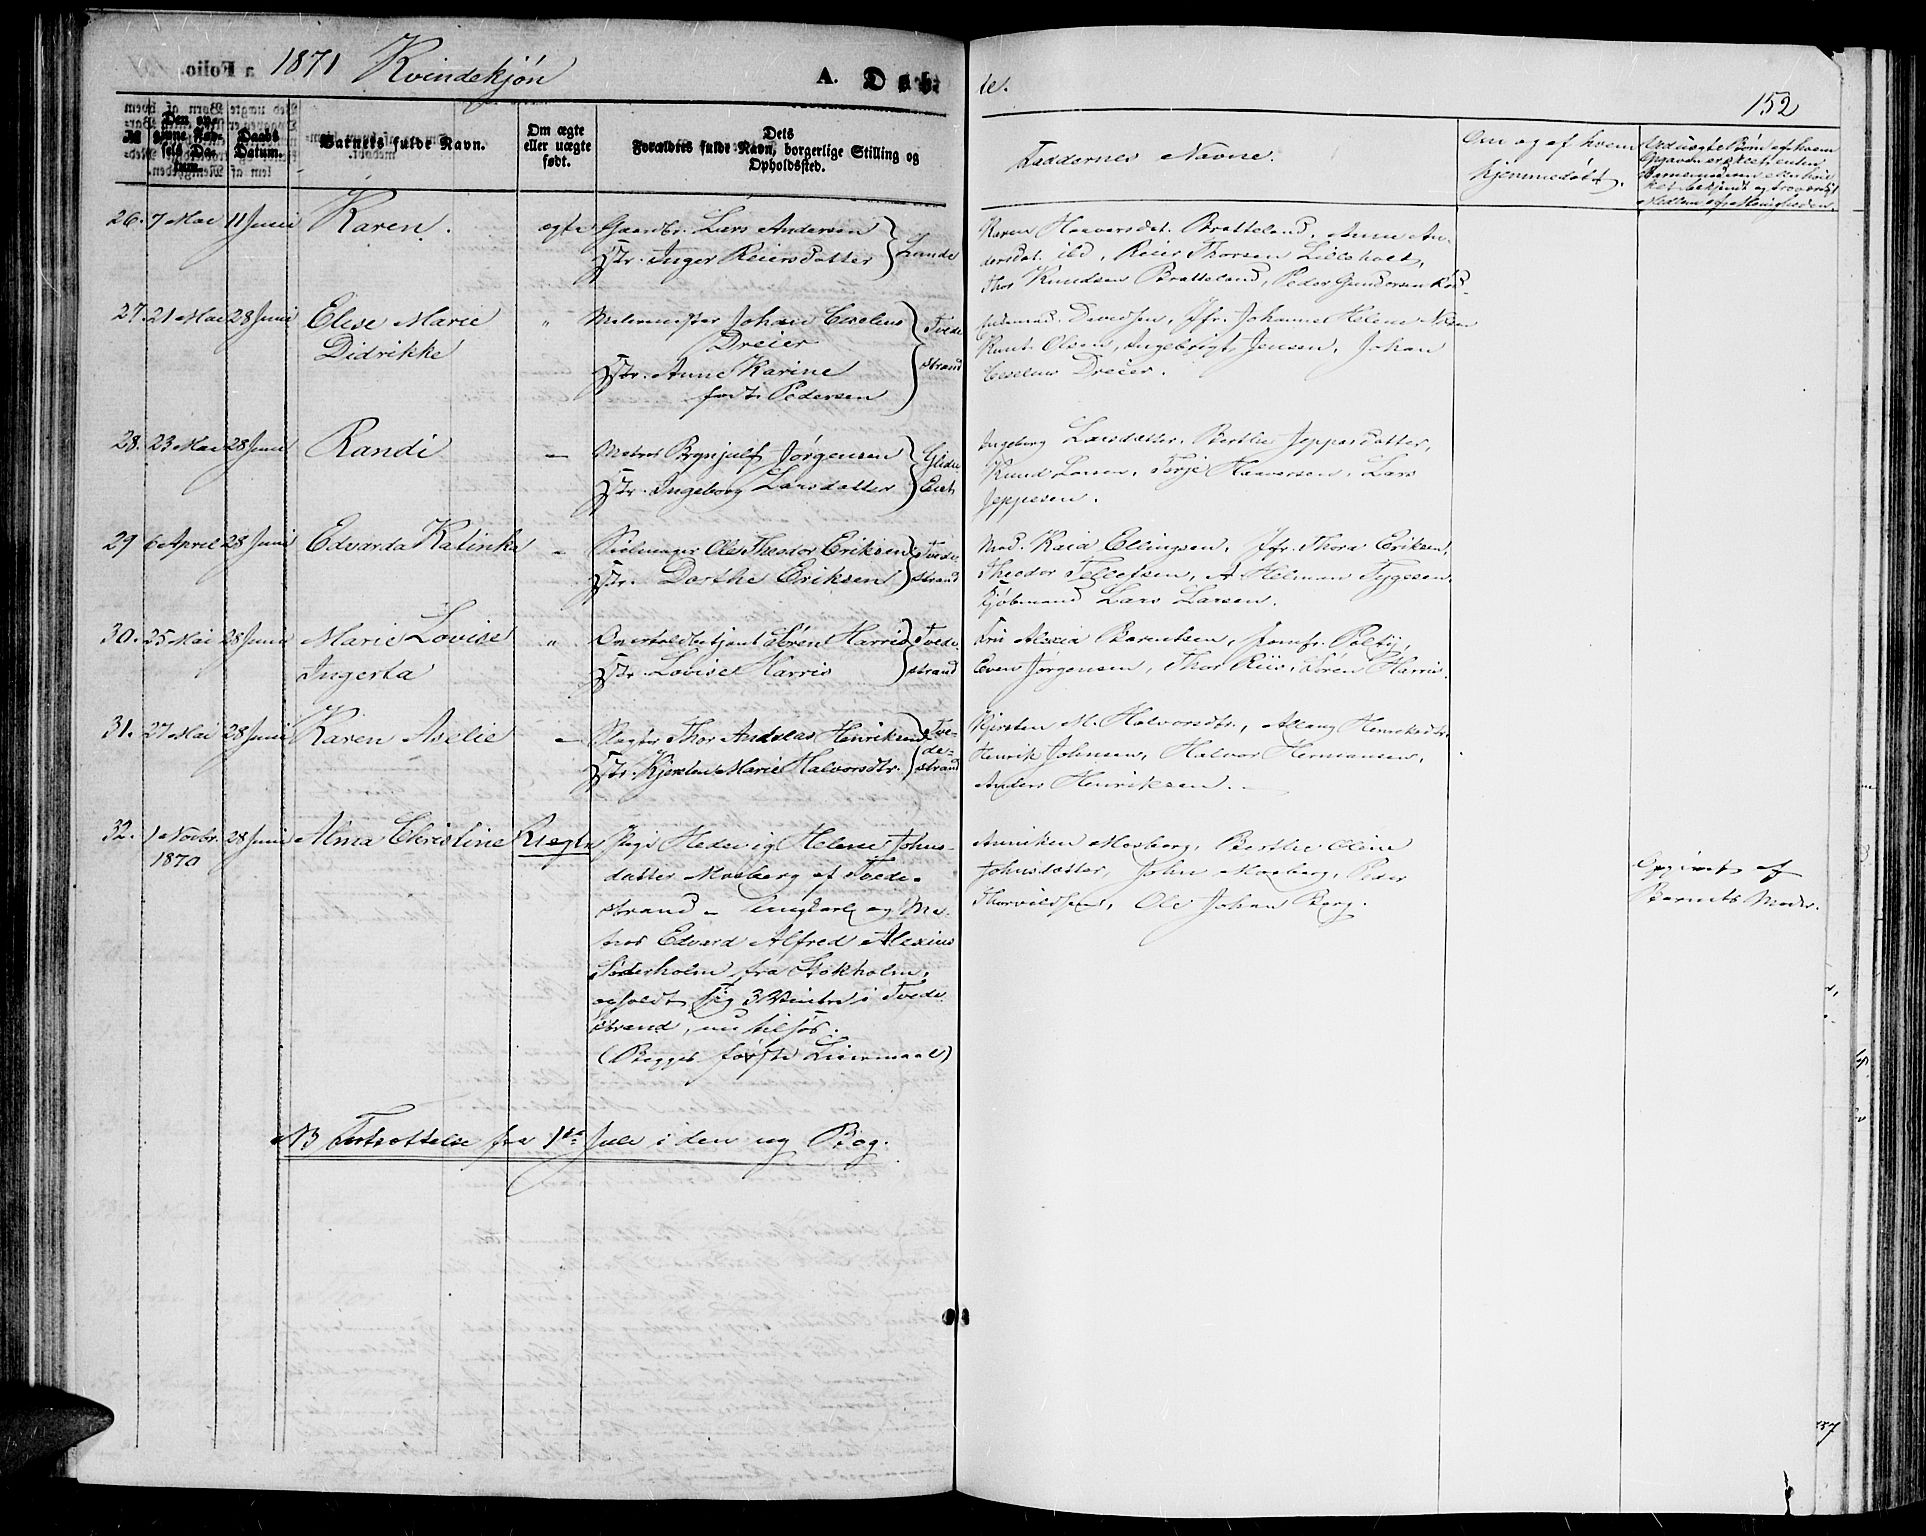 a Folio. 1871 Kvindekjøn A. Døbte.
152
№
Den opgivne Fødsels Datum.
Daabs Datum.
Barnets fulde Navn.
Om ægte eller uægte født.
Dets
Forældres fulde Navn, borgerlige Stilling og
Opholdssted.
Faddernes Navne.
Om og af hvem
hjemmedøbt.
Ved uægte Børn af hvem
26. 7 Mai 11 Juni Karen. ægte Gaardbr. Lars Andersen
Hstr. Inger Reiersdatter Lunde
Karen Haavorsdat. Bratteland, Anne An-
dersdat. ibd, Reier Thorsen Lilleholt,
Thor Knudsen Bratteland, Peder Gundersen
27. 21 Mai 28 Juni Elise Marie
Didrikke
" Malermester Johan
Dreier
Hstr. Anne Karine
født Pedersen
Tvede
strand
Davidsen, Jfr. Johanne Helene
Knut Olsen, Ingebrigt Jensen, Johan
Dreier.
28. 23 Mai 28 Juni Randi — Matros Brynjulf Jørgensen
Hstr. Ingeborg Larsdatter
Ingeborg Larsdatter, Berthe Jeppesdatter,
Knud Larsen, Terje Haavorsen, Lars
Jeppesen.
29 6 April 28 Juni Edvarda Katinka " Seilmager Ole Theodor Eriksen
Hstr. Dorthe Eriksen
Tvede
strand
Mad. Kaia Ellingsen, Jfr. Thora Eriksen,
Theodor Tellefsen, A Helman Tygesen
Kjøbmand Lars Larsen.
30. 25 Mai 28 Juni Marie Lovise
Ingerta
" Overtoldbetjent Søren Harris
Hstr. Lovise Harris
Tvede
strand
Fru Alexia Barentsen, Jomfr.
Even Jørgensen, Thor Riis, Søren Harris.
31. 27 Mai 28 Juni Karen Aselie — Slagter Thor Andreas Henriksen
Hstr. Kjersten Marie Halvorsdtr.
Tve-
de-
strand
Kjersten M. Halvorsdtr., Aslaug Henriksdtr.
Henrik Johnsen, Halvor Hermansen,
Anders Henriksen. —
32. 1 Novbr. 28 Juni Alma Christine Uægte Pige Hedevig Helene Johns-
1870
datter Mosberg af Tvede-
strand — Ungkarl og Ma-
tros Edvard Alfred Alexius
Søderholm fra Stokholm,
opholdt sig 3 Vintre i Tvede
strand, nu tilsøs.
(Begges første Leiermaal)
Anniken Mosberg, Berthe Oline
Johnsdatter, John Mosberg, Peder
Thorvildsen, Ole Johan Berg.
Opgivet af
Barnets Moder.
NB Fortsættelse fra 1ste Juli i den ny Bog.
157